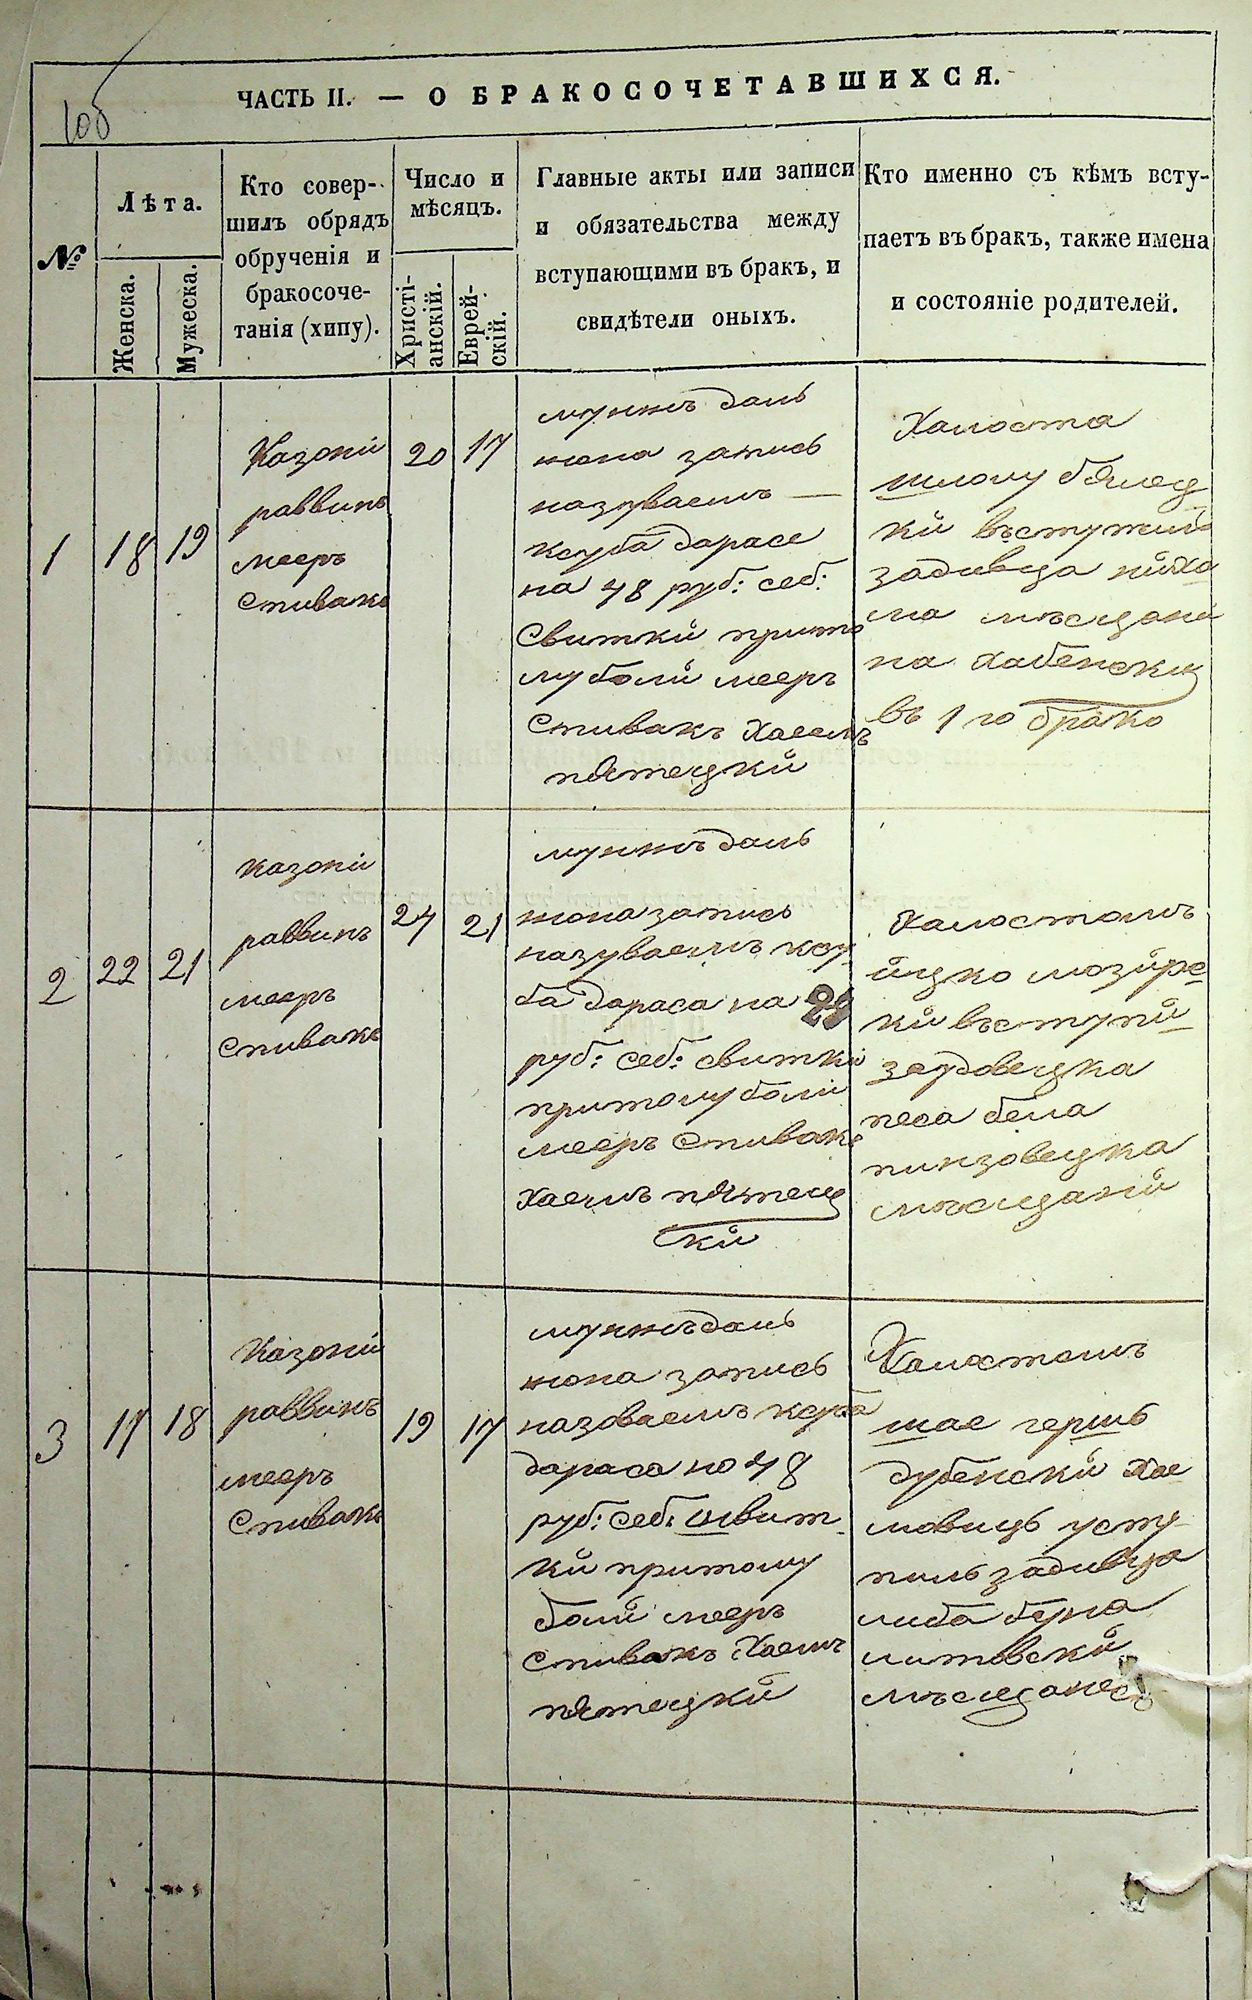 10об
ЧАСТЬ II. — О БРАКОСОЧЕТАВШИХСЯ.
№
Лѣта.
Женска.
Мужеска.
Кто совер-
шилъ обрядъ
обрученія и
бракосоче-
танія (хипу).
Число и
мѣсяцъ.
Христі-
анскій.
Еврей-
скій.
Главные акты или записи
и обязательства между
вступающими въ бракъ, и
свидѣтели оныхъ.
Кто именно съ кѣмъ всту-
паетъ въ бракъ, также имена
и состояніе родителей.
1
18
19
Казоній
раввинъ
мееръ
Спивакъ
20
17
мужъ далъ
жона запись
назуваемъ —
ксуба дарасе
на 48 руб: себ:
Свитки прито
му болй мееръ
Спивакъ Хаемъ
пятецкй
Халоста
шлому
кй
задивца
ма мѣсцони
на Хабенски
въ 1 го брако
2
22
21
казоній
раввинъ
мееръ
Спивакъ
24
21
мужъ далъ
жона запись
назуваемъ ксу
ба дараса на
руб: себ: свитки
притому болй
мееръ Спивакъ
Хаемъ пятец
кй
Халостомъ
ицко мозирс
кй въступй
заудовецка
песа бела
пинзовецка
мѣсцанй
3
17
18
Казоній
раввинъ
мееръ
Спивакъ
19
17
мужъ далъ
жона запись
назоваемъ ксуба
дараса но 48
руб: себ: швит
кй притому
болй мееръ
Спивакъ Хаемъ
пятецкй
Халостомъ
шае гершъ
дубенскй Хае
мовицъ усту
пилъ задивца
либа буна
литовскй
мѣсцонес